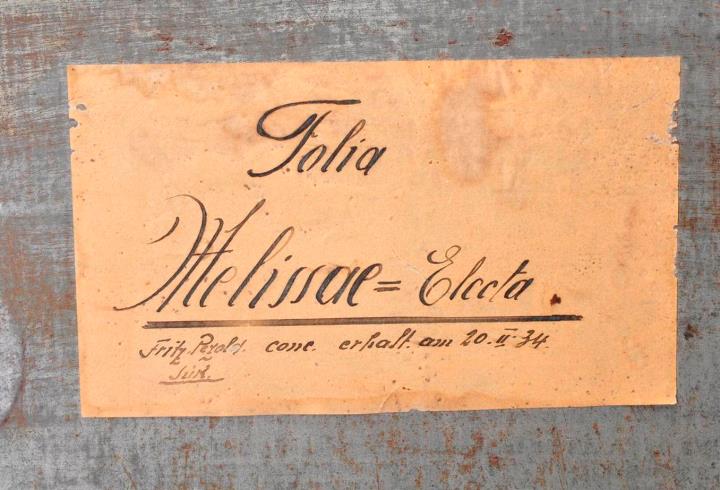 Folia
Melissae = Electa.
Fritz conc. erhalt. am 20. II. 34.